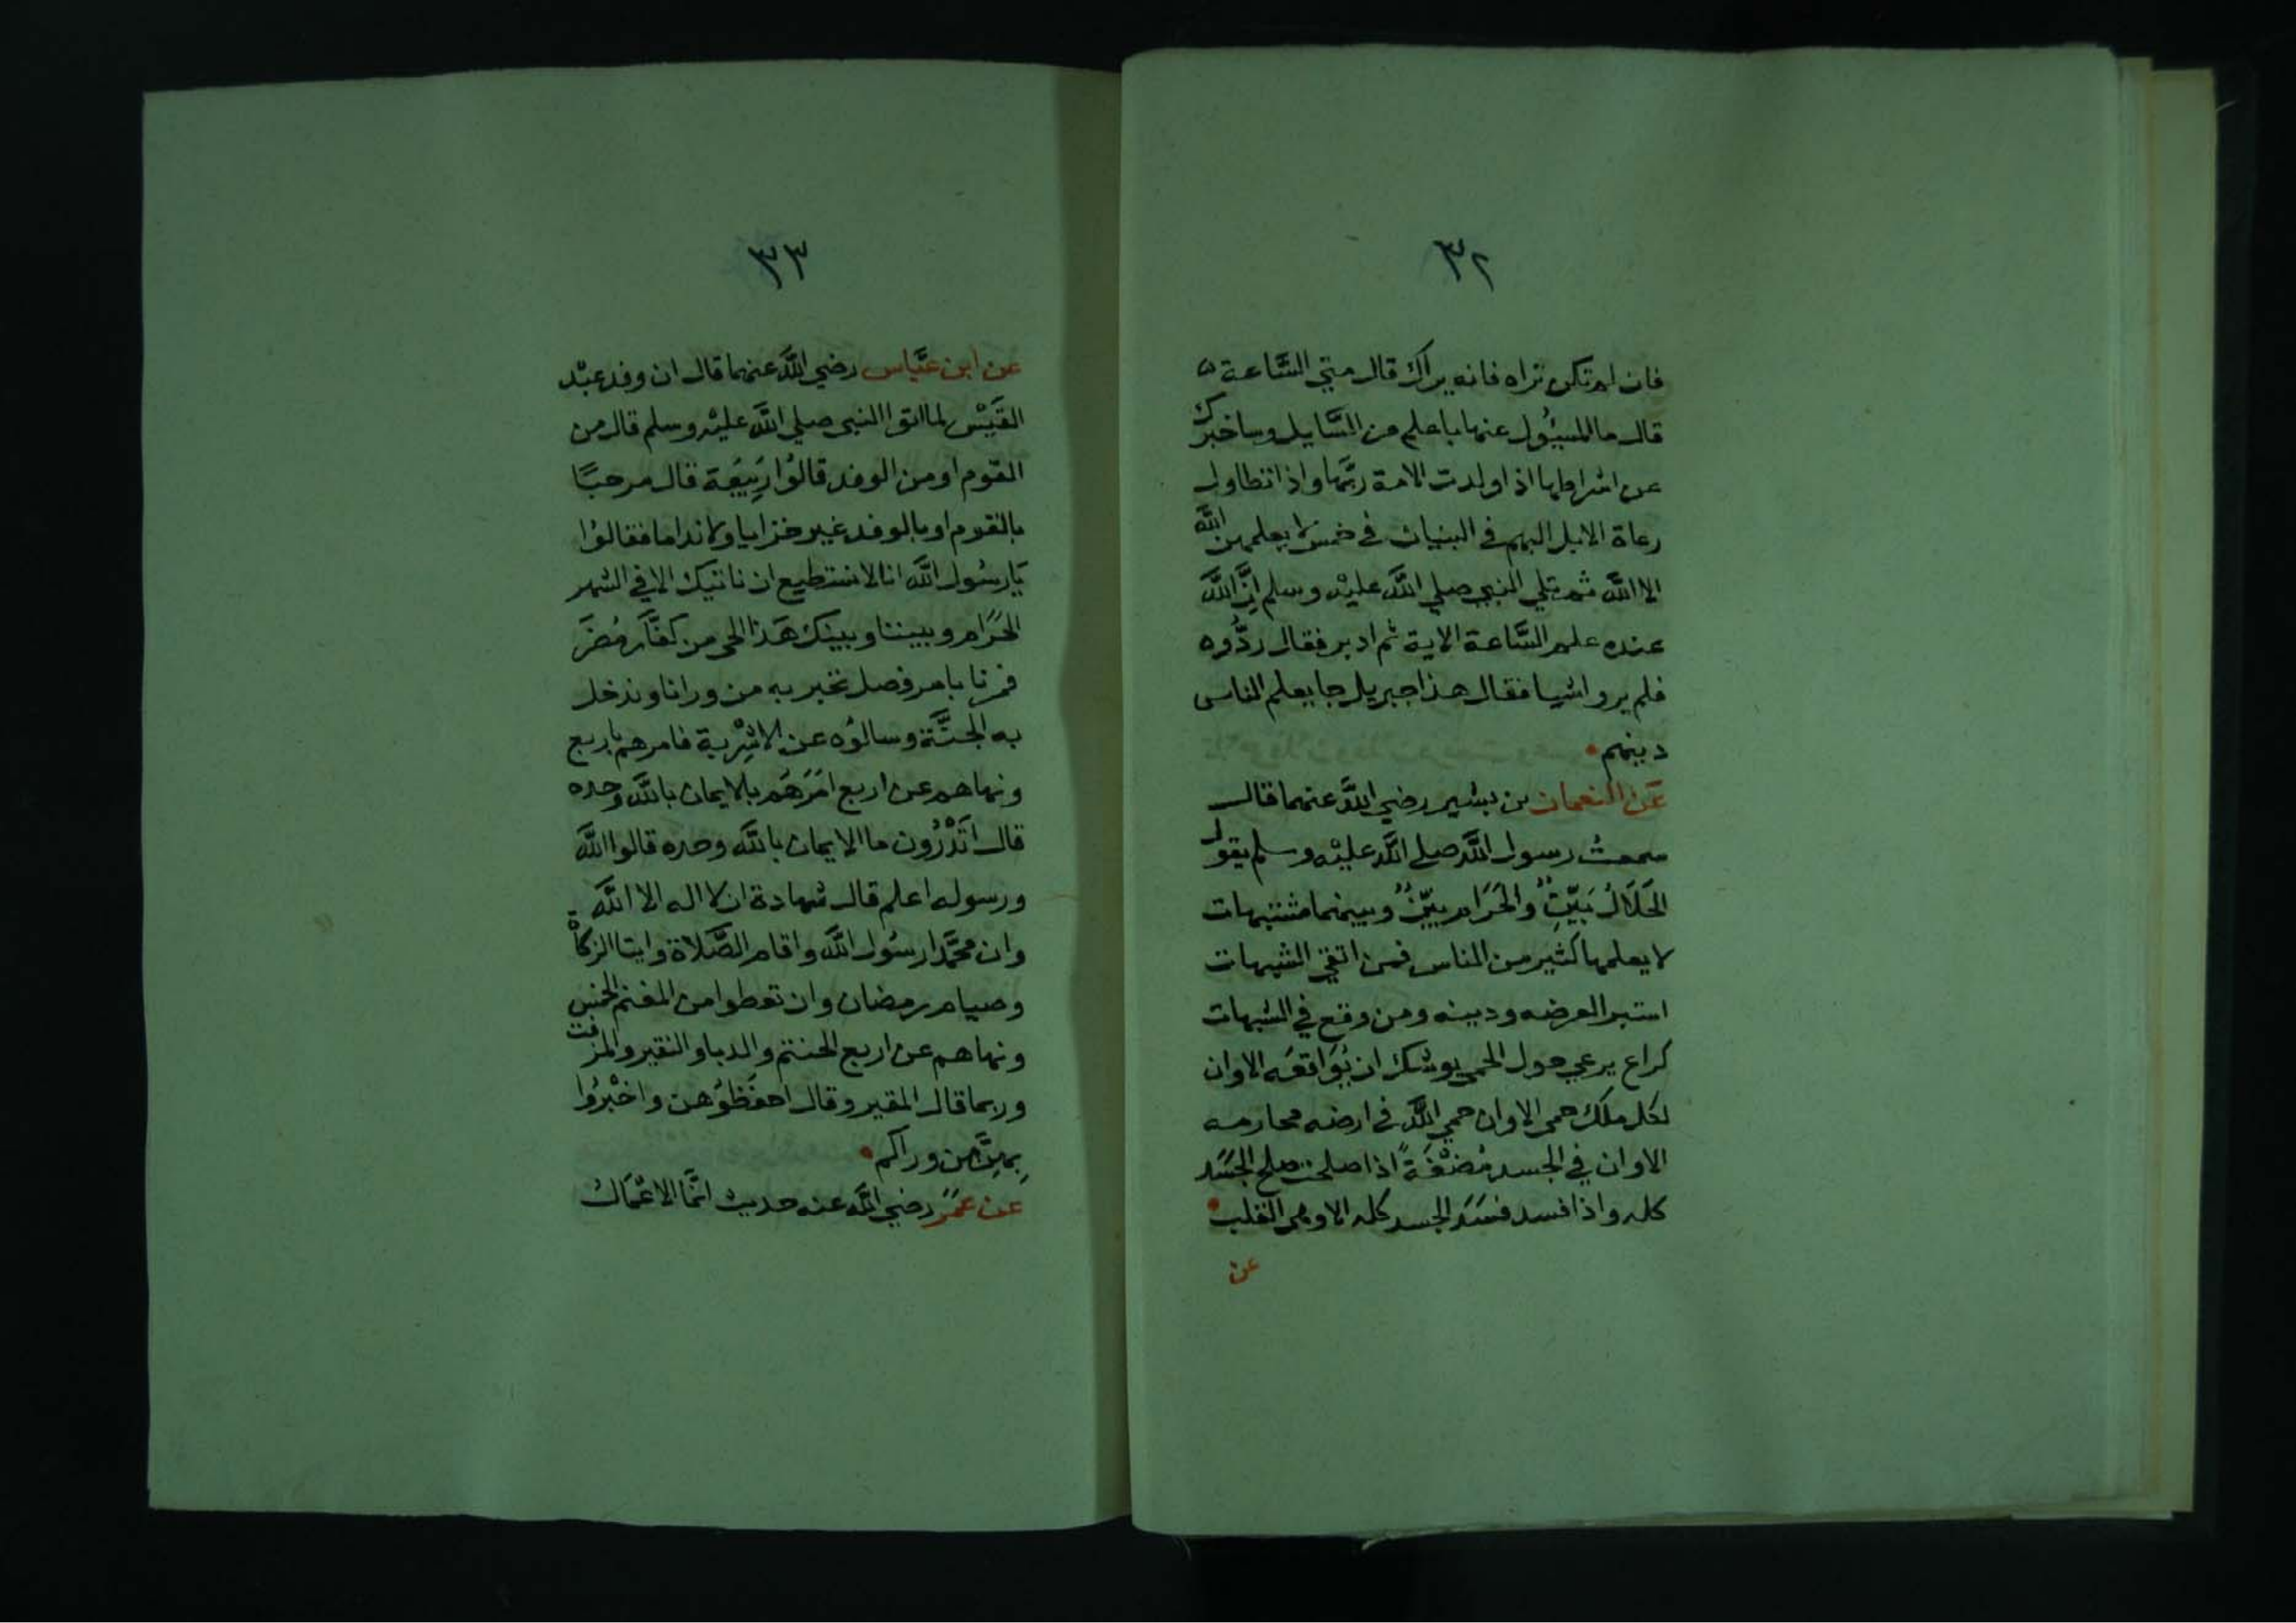 ٣٢
فان لم تكن تراه فانه يراك قال متي السَّاعة ه
قال ما المسئُول عنها باعلم من السَّايل وساخبرك
عن اشراطها اذا ولدت الامة ربَّها واذا تطاول
رعاة الابل البهم في البنيان في خمس لا يعلمهن الله
الا الله ثم تلي النبي صلي الله عليه وسلم انَّ الله
عنده علم السَّاعة الاية ثم ادبر فقال ردُّوه
فلم يروا شيا فقال هذا جبريل جا يعلم الناس
دينهم
عَن النعمان بن بشير رضي الله عنهما قال
سمعت رسول الله صلي الله عليْه وسلم يقول
الحَلَالُ بَيِّنٌ والحَرَام بيّنٌ وبينهما مشتبهات
لا يعلمها كثير من الناس فمن اتقي الشبهات
استبرا لعرضه ودينه ومن وقع في الشبهات
كراع يرعي حول الحمي يوشك ان يُوَاقعَه الا وان
لكل ملك حمي الا وان حمي الله في ارضه محارمه
الا وان في الجسد مُضْغَةً اذا صلحت صلح الجَسَد
كله واذا فسد فسَدَ الجسد كله الا وهي القلب
عن
٣٣
عن ابن عبَّاس رضي الله عنهما قال ان وفد عبْد
القَيْس لما اتوا النبي صلي الله عليْه وسلم قال من
القوم او من الوفد قالوُا رَبِيعَة قال مرحبًا
بالقوم او بالوفد غير خزايا ولا نداما فقالوُا
يَا رسُول الله انا لا نستطيع ان ناتيك الا في الشهر
الحَرَام وبيننا وبينك هَذا الحي من كفَّار مُضَر
فمرنا بامر فصل نخبر به من ورانا وندخل
به الجنَّة وسالوُه عن الاشْرِبة فامرهم باربع
ونهاهم عن اربع امَرَهُم بالايمان بالله وحده
قال اتَدْرُون ما الايمان بالله وحده قالوا الله
ورسوله اعلم قال شهادة ان لا اله الا الله
وان محمَّدا رسُول الله واقام الصَّلاة وايتا الزكاة
وصيام رمضان وان تعطوا من المغنم الخمس
ونهاهم عن اربع الحنتم والدبا والنقير والمزفت
وربما قال المقير وقال احفَظُوُهن واخْبرُوا
بِهِنَّ من وراكم
عن عمَرَ رضي الله عنه حديث انمَّا الاعْمَال